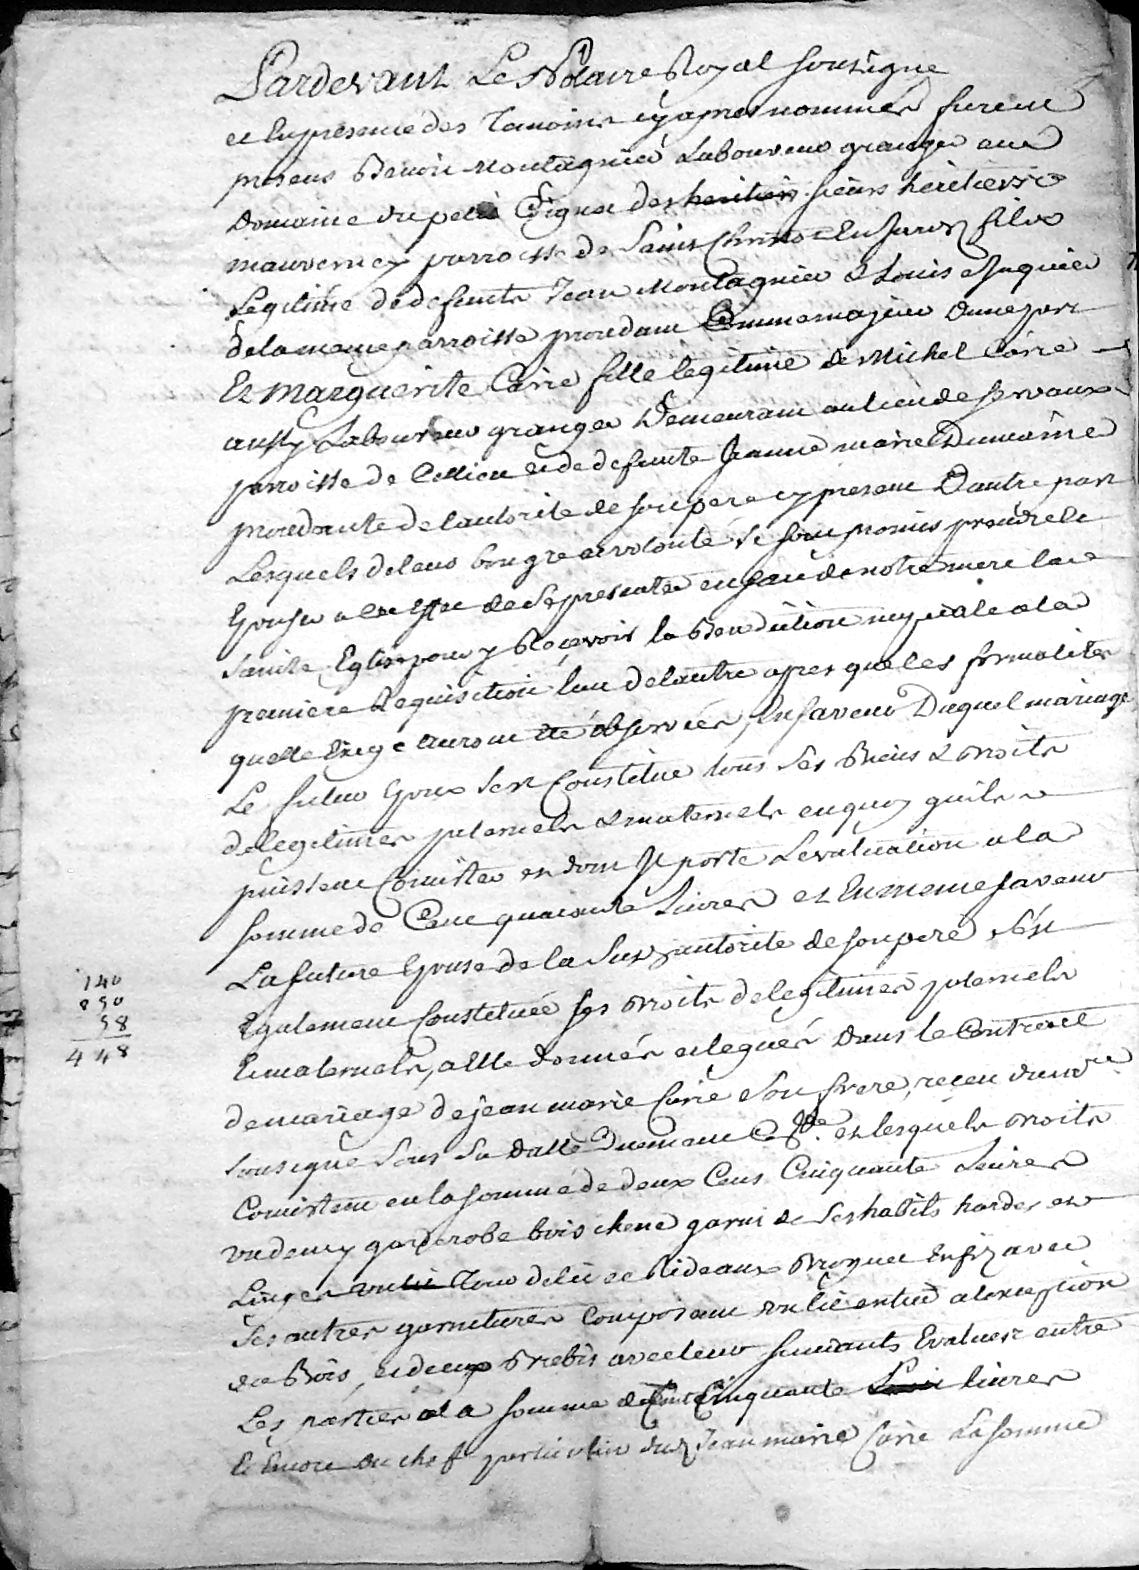 Pardevant Le Notaire Royal soussigné
et En presence des Temoins cy apres nommés furent
presens Benoit Montagnier Laboureur granger au
Domaine du petit des heritiers sieurs heritiers
mauvernay parroisse de Saint Christo En Jarez fils
Legitime de defunts Jean Montagnier & Louise
de la meme parroisse procedant Comme majeur d'une part
Et Marguerite Coirre fille legitime de Michel Coirre
aussy Laboureur granger Demeurant au lieu de servaux
parroisse de Cellieu et de defunte Jeanne marie Dumaine
procedante de lautorité de son pere cy present D'autre part
Lesquels de leur bon gré et volonté se sont promis prendre le
Epouser a cet effet de se presenter en face de notre mere la
Sainte Eglise pour y Recevoir la Benediction nuptiale a la
premiere Requisition l'un de lautre apres que les formalités
quelle Exige auront été observées, En faveur Duquel mariage
Le futur Epoux sest Constitué tous ses Biens & droits
de legitimes paternels & maternels en quoy quils
puissent Consister en dont Il porte Levaluation a la
somme de Cent quarante Livres et En meme faveur
La future Epouse de la Susd autorité de son pere sest
Egalement Constituée ses droits de legitimes paternels
Et maternels, a elle donnés et legués dans le Contract
de mariage de jean marie Coirre son frere, reçeu du nre
soussigné sous sa datte Duement Clé et lesquels droits
Consistent en la somme de deux Cens Cinquante Livres
un demy garderobe bois chene garni de ses habits hardes et
Linges un lit Tour de lit et Rideaux avec
ses autres garnitures composant un lit entier a lexception
du Bois, et deux Brebis avec leur suivants Evaluer entre
Les parties a la somme de Cent Cinquante livres
Et Encore du chef particulier dud Jean marie Coirre La somme
140
250
58
448